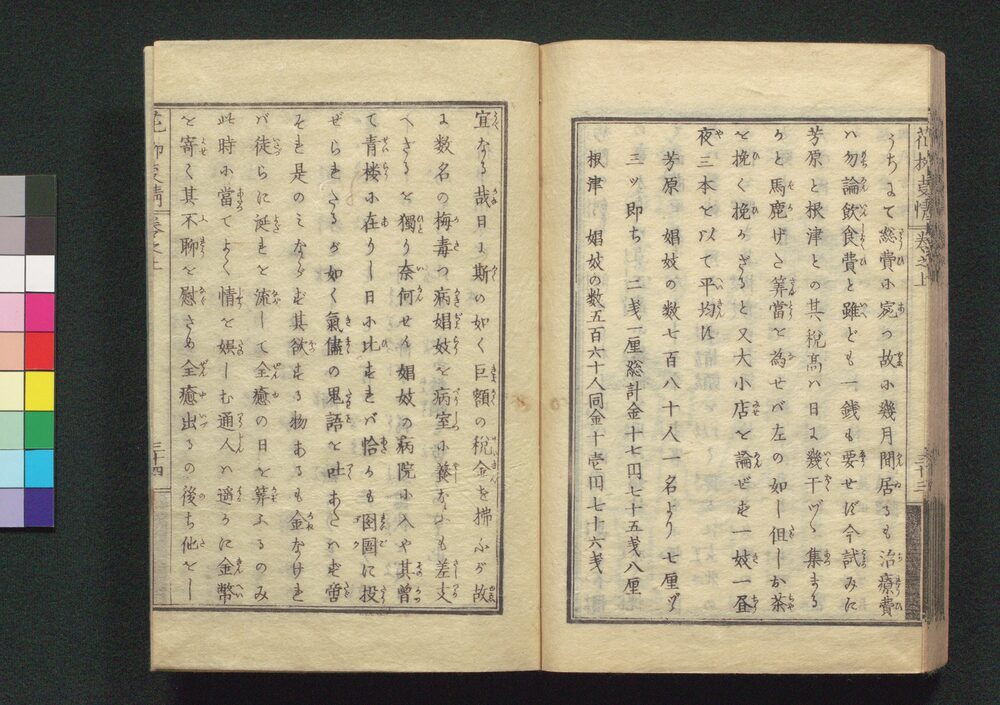 花柳事情 巻之上 三十三
うちにて総費に宛つ故に幾月間居るも治療費
ハ勿論飲食費と雖ども一銭も要せず今試みに
芳原と根津との其税高ハ日に幾干づゝ集まる
かと馬鹿げた算當を為せバ左の如し但しお茶
を挽く挽かざると又大小店を論ぜず一妓一昼
夜三本を以て平均す
芳原 娼妓の数七百八十人一名より七厘づゝ
三ッ即ち 二戔一厘総計金十七円七十五戔八厘
根津 娼妓の数五百六十人同金十壱円七十六戔
宜なる哉日に斯の如く巨額の税金を拂ふが故
に数名の梅毒つ病娼妓を病室に養なふも差支
へざるを獨り奈何せん娼妓の病院に入や其曾
て青楼に在りし日に比すれバ恰かも囹圄に投
ぜられたるが如く氣儘の鬼語を吐あたハず啻
それ是のミならず其欲する物あるも金なけれ
バ徒らに涎れを流して全癒の日を算ふるのみ
此時に當てよく情を娯しむ通人ハ遥かに金幣
を寄せ其不聊を慰さめ全癒出るの後ち他をし
花柳事情 巻之上 三十四